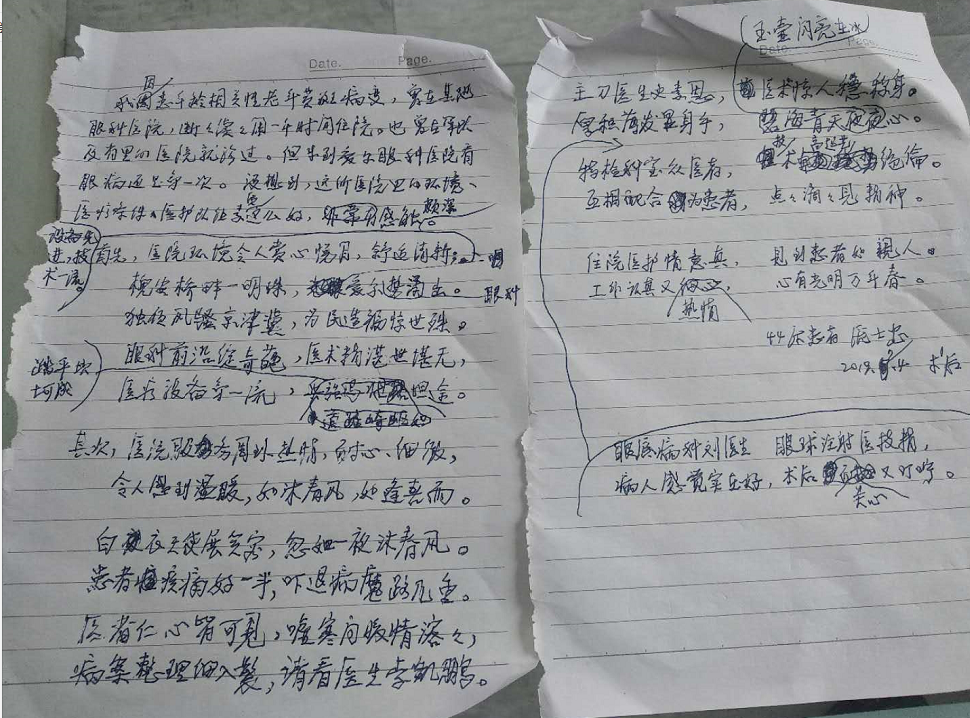 Date. Page.
我因患年龄相关性老年黄斑病变，曾在其他
眼科医院，断断续续用一年时间住院。也曾在军队
及省里的医院就诊过。但来到爱尔眼科医院看
眼病还是第一次。没想到，这所医院里的环境、
医疗条件、医护队伍是这么好，感触颇深。
首先，医院环境令人赏心悦目，舒适清新，
设备先
进，技
术一流。
槐安桥畔一明珠，爱尔眼科
独领风骚京津冀，为民造福惊世殊。
眼科前沿绽奇葩，医术精湛世堪无，
医疗设备第一流，坦途。
踏平坎
坷成
其次，医院服务周到热情，耐心、细微，
令人感到温暖，如沐春风，如逢喜雨。
白衣天使展笑容，忽如一夜沐春风。
患者疾痛好一半，吓退病魔路几重。
医者仁心皆可见，嘘寒问暖情溶溶，
病案整理细入发，请看医生李凯鹏。
Date. Page.
玉壶闪亮在冰
主刀医生史素恩，医术惊人称身。
厚积薄发显身手，碧海青天夜夜心。
特检科室众医者，技术高超绝伦。
互相配合为患者，点点滴滴见精神。
住院医护情意真，见到患者如亲人。
工作认真又热情，心有光明万年春。
44床患者
2019. 术后
眼底病科刘医生 眼球注射医技精，
病人感觉实在好，术后关心又叮咛。